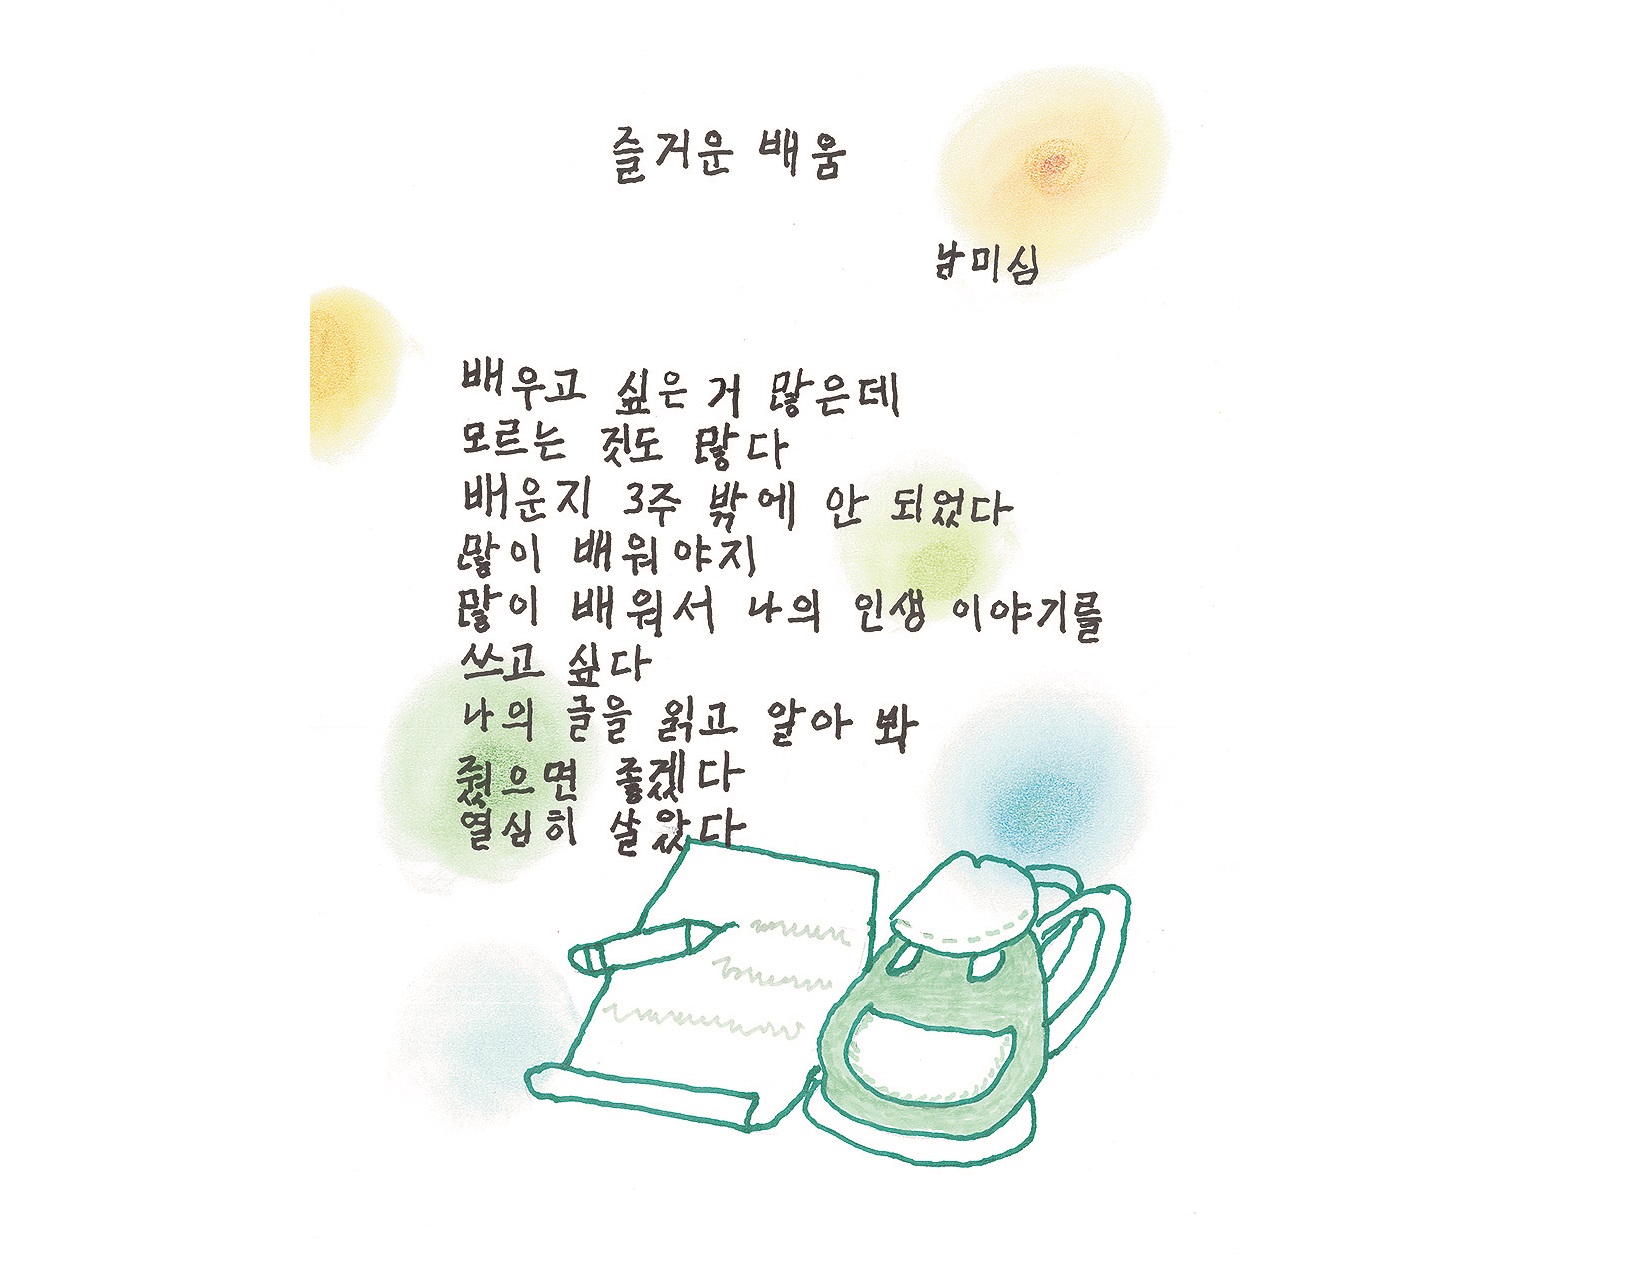 즐거운 배움
남미심
배우고 싶은 거 많은데
모르는 것도 많다
배운지 3주 밖에 안 되었다
많이 배워야지
많이 배워서 나의 인생 이야기를
쓰고 싶다
나의 글을 읽고 알아 봐
줬으면 좋겠다
열심히 살았다